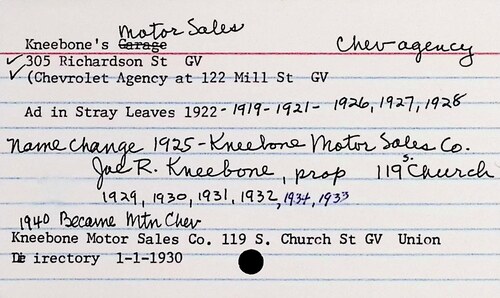 Motor Sales
Kneebone's Garage Chev agency
✓305 Richardson St GV
✓(Chevrolet Agency at 122 Mill St GV
Ad in Stray Leaves 1922-1919-1921-1926, 1927, 1928
Name change 1925-Kneebone Motor Sales Co.
Joe R. Kneebone, prop 119 S. Church
1929, 1930, 1931, 1932, 1934, 1933
1940 Became Mtn Chev
Kneebone Motor Sales Co. 119 S. Church St GV Union
Directory 1-1-1930